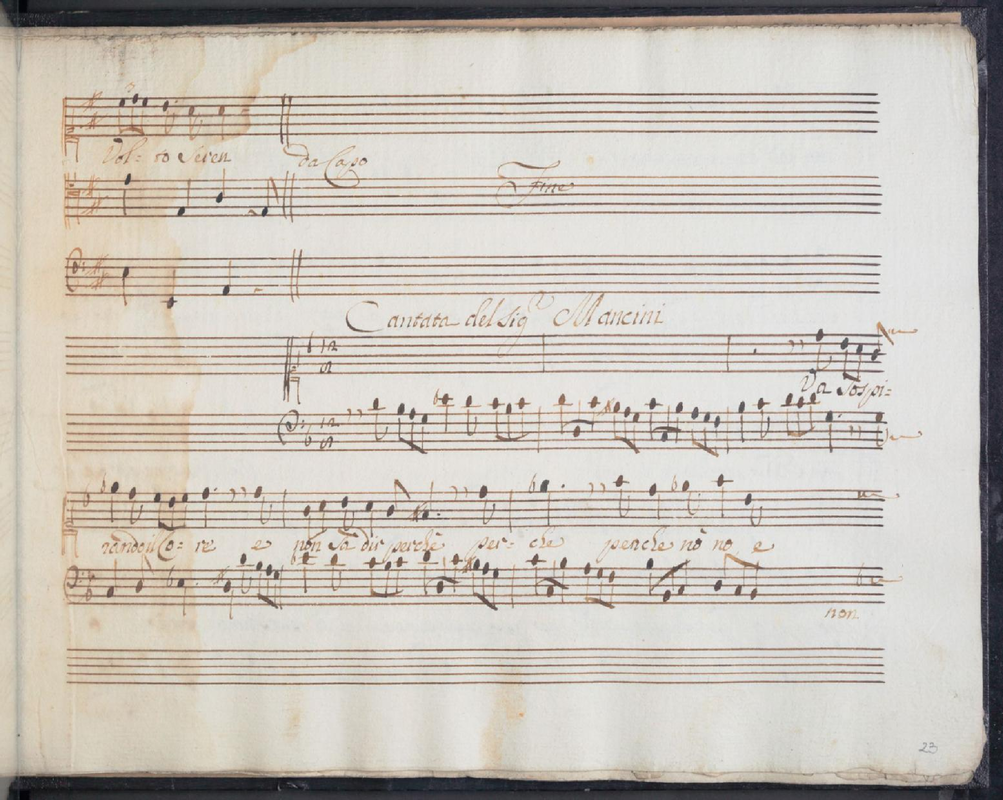 Vol= to Seren da Capo
Fine
Cantata del Sig.r Mancini
12
8
Va Sospi=
12
8
rando il Co= re e non sà dir perchè per= che perche nò no e
non
23